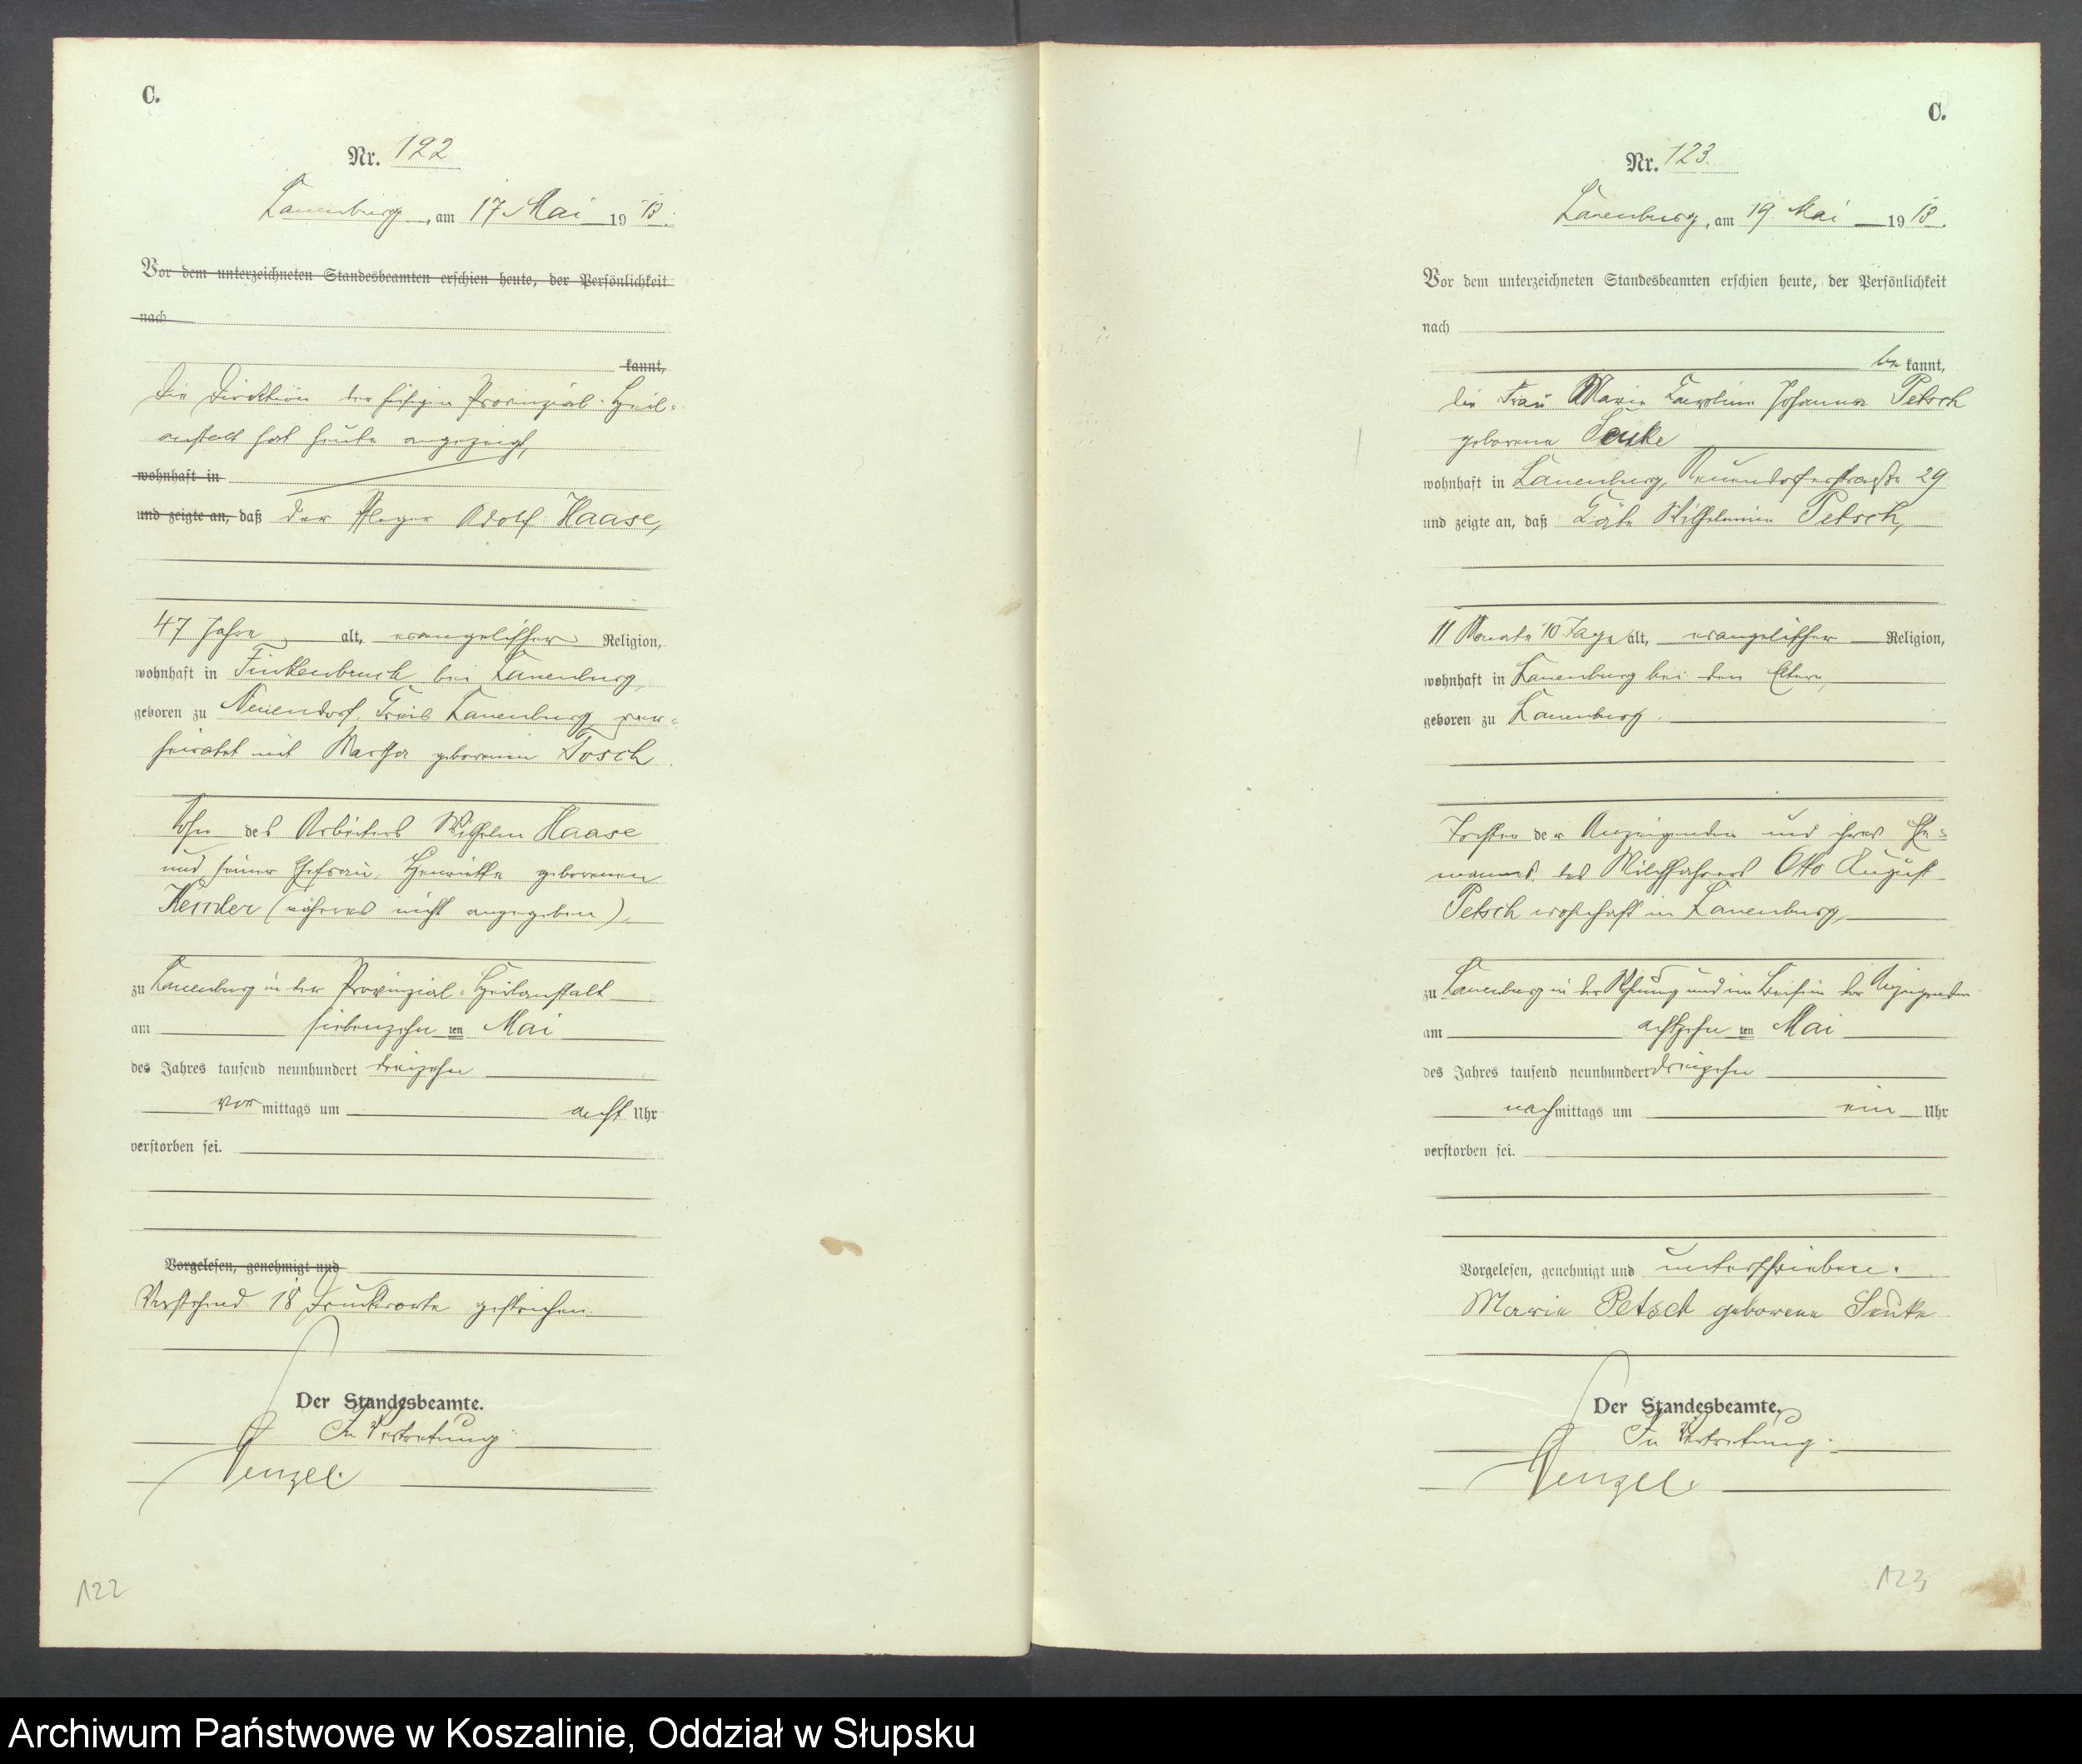 C.
Nr. 122
Lauenburg, am 17 Mai 1913.
Vor dem unterzeichneten Standesbeamten erschien heute, der Persönlichkeit
nach
kannt,
Die Direktion der hiesigen Provinzial-Heil-
anstalt hat heute angezeigt,
wohnhaft in
und zeigte an, daß der Pfleger Adolf Haase,
47 Jahre alt, evangelischer Religion,
wohnhaft in Finkenbruch bei Lauenburg,
geboren zu Neuendorf Kreis Lauenburg ver-
heiratet mit Martha geborenen Tosch
Sohn des Arbeiters Wilhelm Haase
und seiner Ehefrau, Henriette geborenen
(näheres nicht angegeben),
zu Lauenburg in der Provinzial-Heilanstalt
am siebenzehn ten Mai
des Jahres tausend neunhundert dreizehn
vor mittags um acht Uhr
verstorben sei.
Vorgelesen, genehmigt und
Vorstehend 18 Druckworte gestrichen.
Der Standesbeamte.
In Vertretung.
Wenzel.
122
C.
Nr. 123.
Lauenburg, am 19. Mai 1913.
Vor dem unterzeichneten Standesbeamten erschien heute, der Persönlichkeit
nach
be kannt,
die Frau Marie Karoline Johanna Petsch
geborene Senke
wohnhaft in Lauenburg, Neuendorferstraße 29
und zeigte an, daß Käte Wilhelmine Petsch,
11 Monate 10 Tage alt, evangelischer Religion,
wohnhaft in Lauenburg bei den Eltern,
geboren zu Lauenburg.
Tochter der Anzeigenden und ihres Ehe-
mannes des Milchfahrers Otto August
Petsch wohnhaft in Lauenburg,
zu Lauenburg in der Wohnung und im Beisein der Anzeigenden
am achtzehn ten Mai
des Jahres tausend neunhundert dreizehn
nach mittags um ein Uhr
verstorben sei.
Vorgelesen, genehmigt und unterschrieben.
Marie Petsch geborene Senke
Der Standesbeamte.
In Vertretung.
Wenzel.
123
Archiwum Państwowe w Koszalinie, Oddział w Słupsku